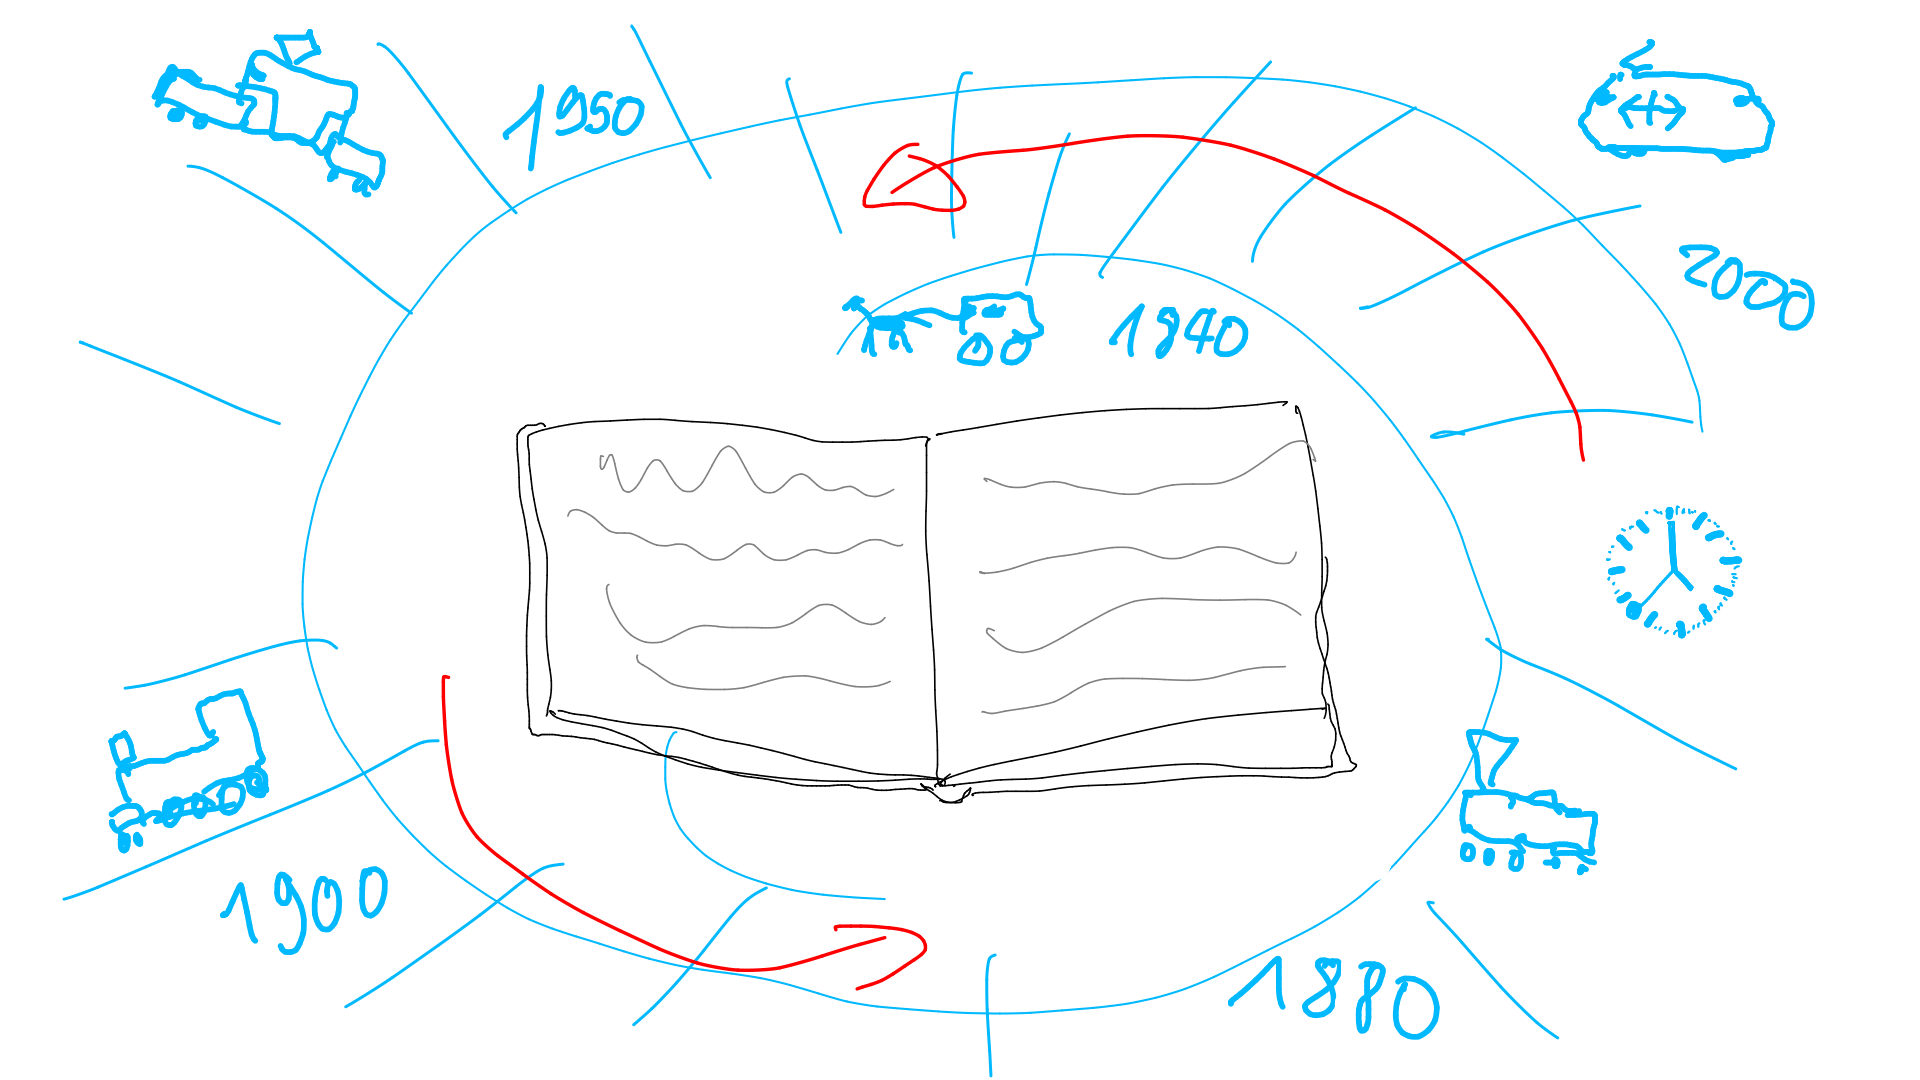 1950
2000
1840
1900
1880